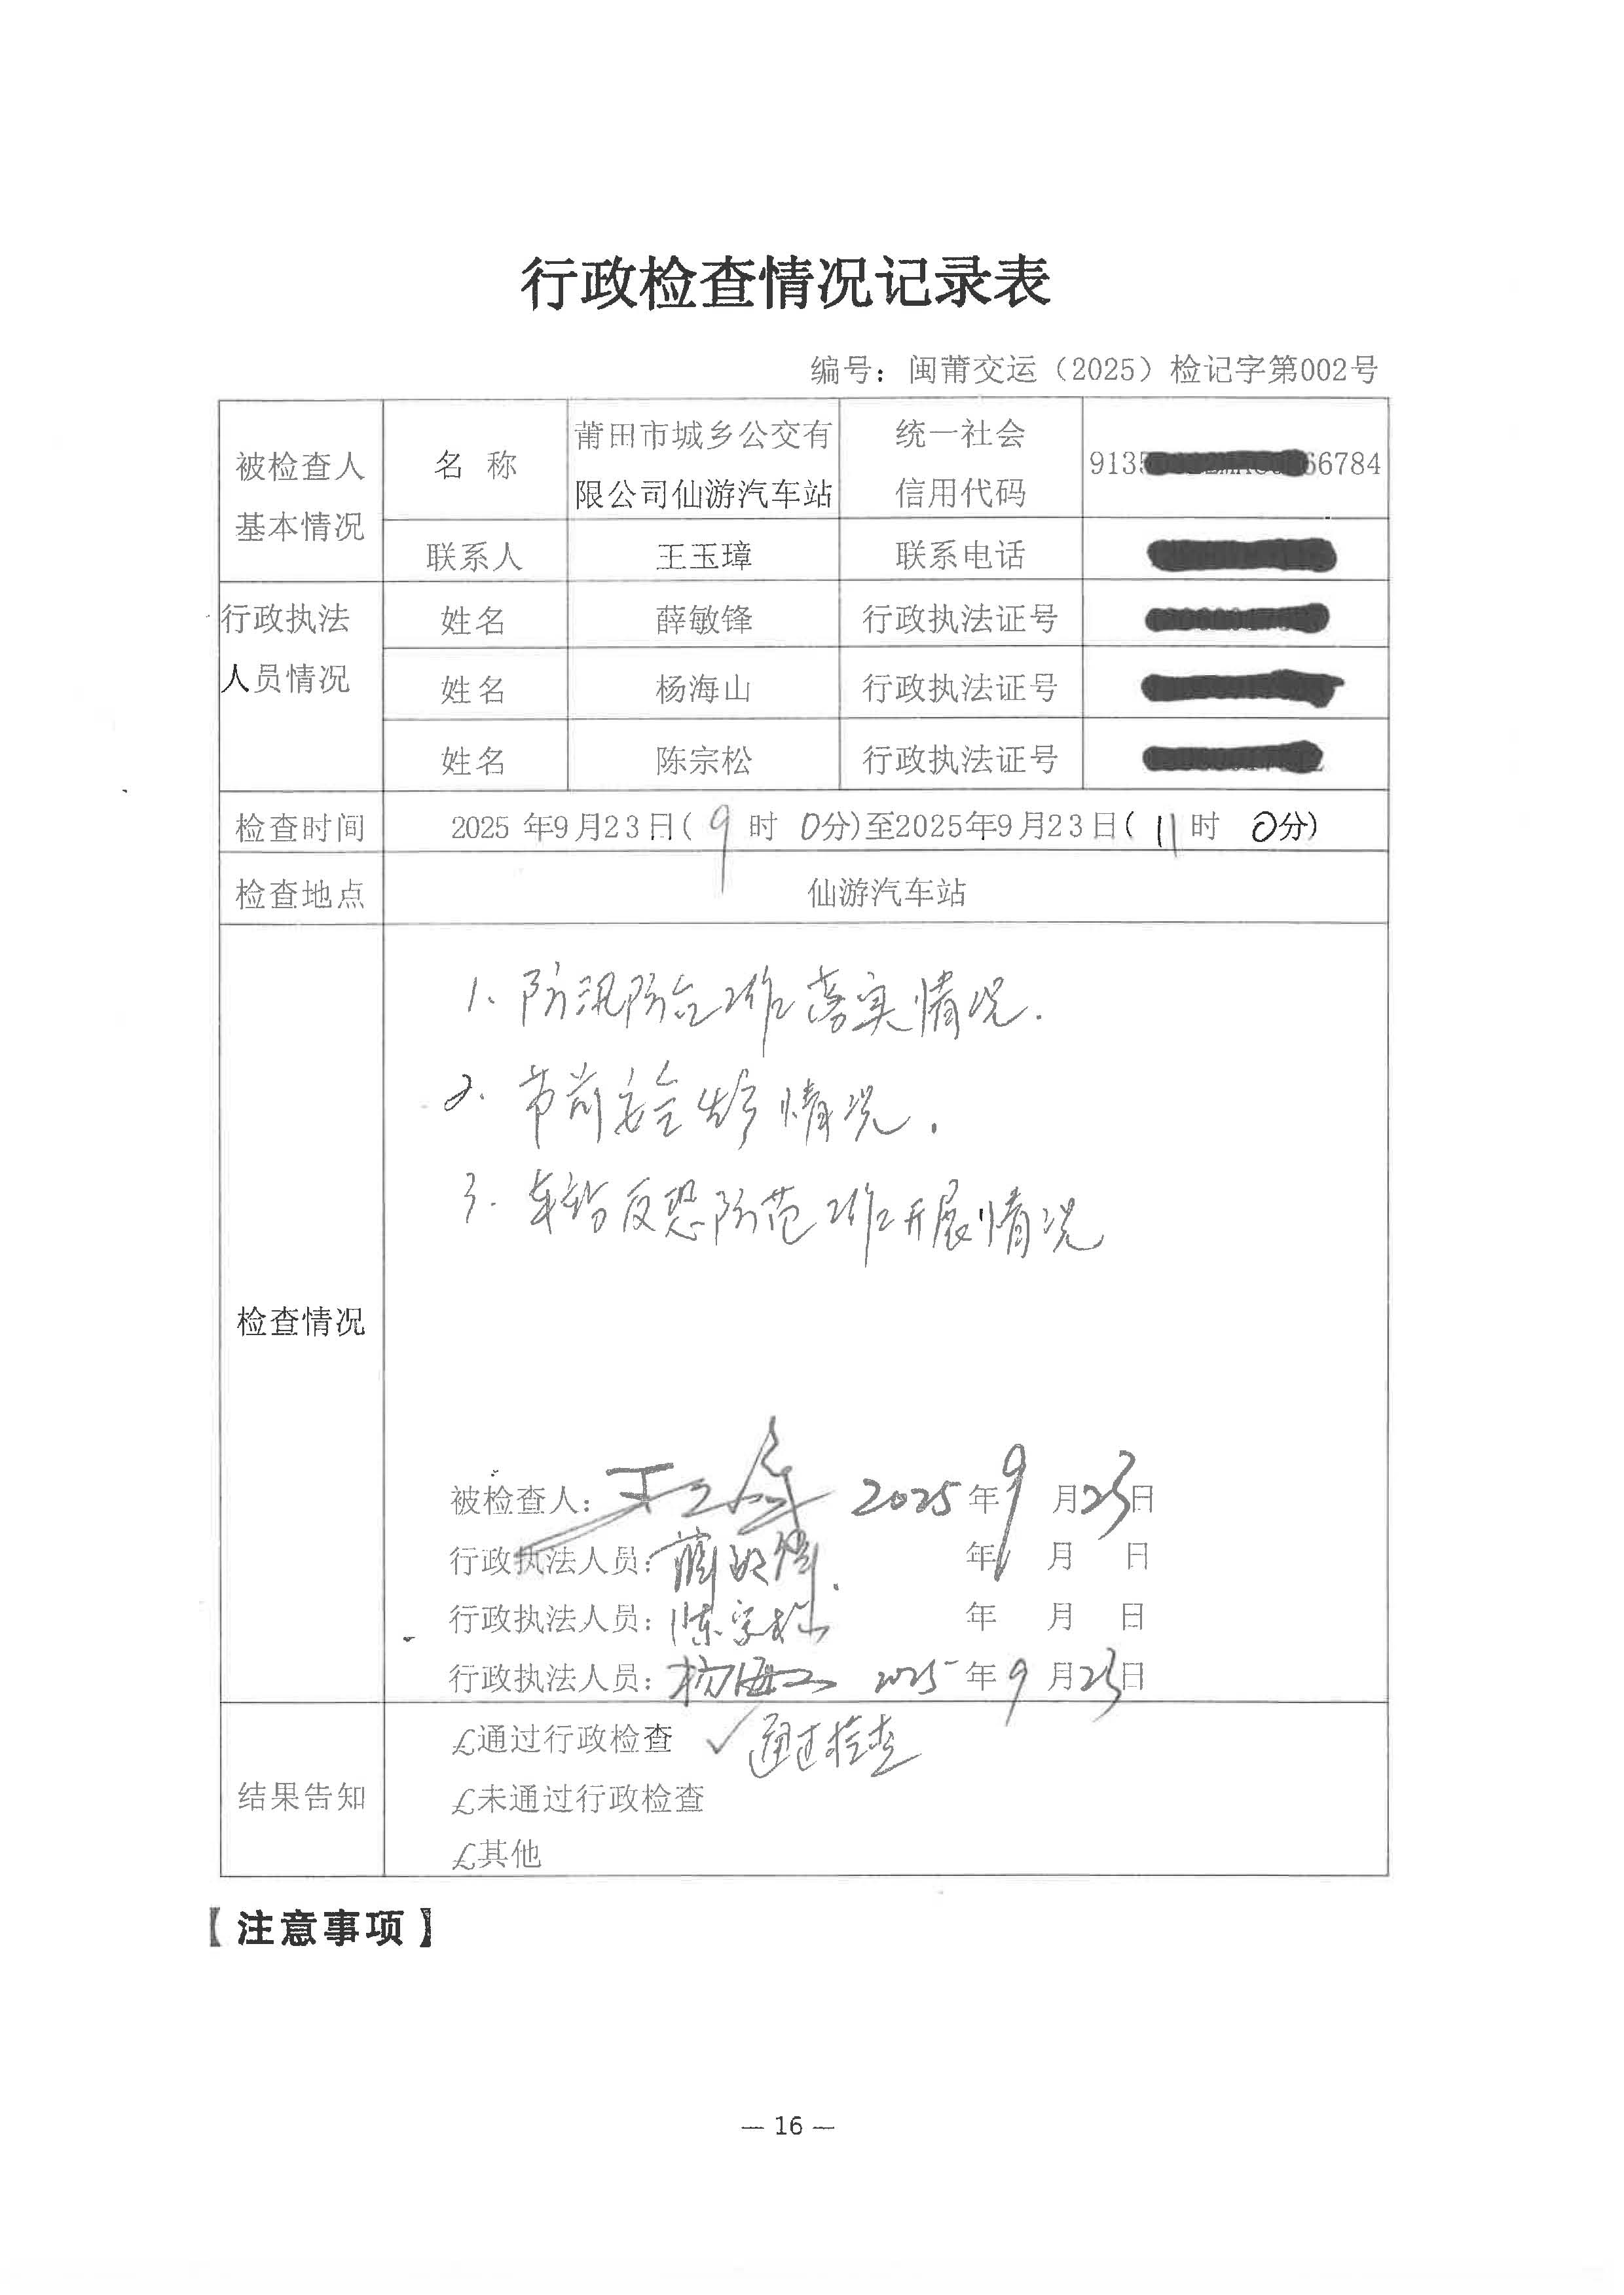 行政检查情况记录表
编号：闽莆交运（2025）检记字第002号
被检查人
基本情况
名 称
莆田市城乡公交有
限公司仙游汽车站
统一社会
信用代码
913 66784
联系人
王玉璋
联系电话
行政执法
人员情况
姓名
薛敏锋
行政执法证号
姓名
杨海山
行政执法证号
姓名
陈宗松
行政执法证号
检查时间
2025 年9月23日( 9 时 0分)至2025年9月23日( 11 时 0分)
检查地点
仙游汽车站
检查情况
1. 防汛防台工作落实情况.
2. 节前安全生产情况.
3. 车站反恐防范工作开展情况
被检查人: 王玉璋 2025 年 9 月 23 日
行政执法人员: 薛敏锋 年 月 日
行政执法人员: 陈宗松 年 月 日
行政执法人员: 杨海山 2025 年 9 月 23 日
结果告知
£通过行政检查 ✓ 通过检查
£未通过行政检查
£其他
【注意事项】
— 16 —